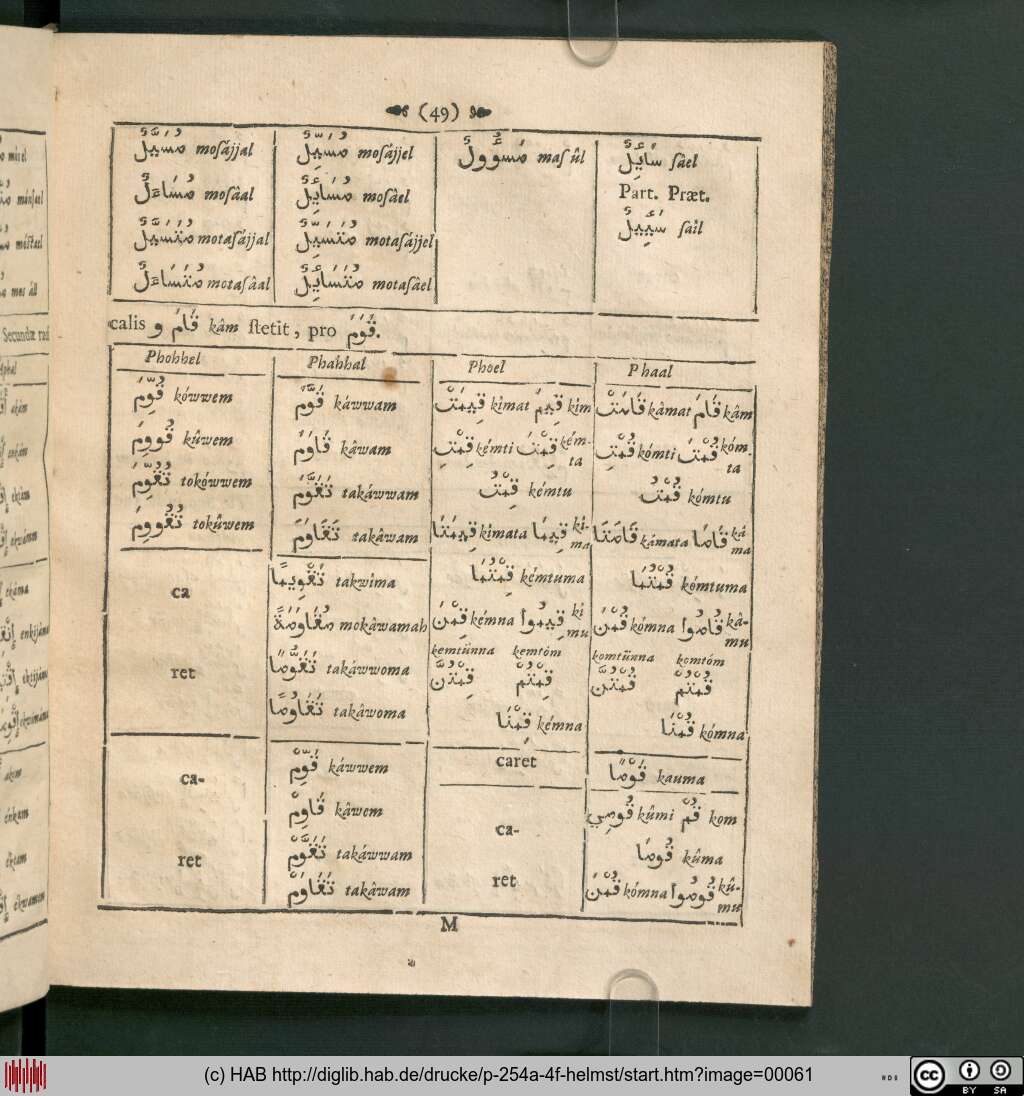 (49)
مُسَيَّلٌ mosájjal مُسَيِّلٌ mosájjel مَسؤُولٌ masûl سَائِلٌ sâel
Part. Præt.
مُسَاءَلٌ mosâal مُسَائِلٌ mosâel سَئِيلٌ saîl
مُتَسَيَّلٌ motasájjal مُتَسَيِّلٌ motasájjel
مُتَسَاءَلٌ motasâal مُتَسَائِلٌ motasâel
calis و قَامَ kâm stetit, pro قَوَمَ.
Phohhel Phahhal Phoel Phaal
قُوِّمَ kówwem قَوَّمَ káwwam قِيمَتْ kîmat قِيمَ kîm قَامَتْ kâmat قَامَ kâm
قُووِمَ kûwem قَاوَمَ kâwam قِمْتِ kémti قِمْتَ kém-ta قُمْتِ kómti قُمْتَ kóm-ta
تُقُوِّمَ tokówwem تَقَوَّمَ takáwwam قِمْتُ kémtu قُمْتُ kómtu
تُقُووِمَ tokûwem تَقَاوَمَ takâwam قِيمَتَا kîmata قِيمَا kî-ma قَامَتَا kámata قَامَا kâ-ma
ca تَقْوِيمًا takwîma قِمْتُمَا kémtuma قُمْتُمَا kómtuma
مُقَاوَمَةً mokâwamah قِمْنَ kémna قِيمُوا kî-mu قُمْنَ kómna قَامُوا kâ-mu
ret تَقَوُّمًا takáwwoma kemtünna kemtóm komtünna komtóm
قِمْتُنَّ قِمْتُمْ قُمْتُنَّ قُمْتُمْ
تَقَاوُمًا takâwoma قِمْنَا kémna قُمْنَا kómna
ca- قَوِّمْ káwwem caret قَوْمًا kauma
قَاوِمْ kâwem ca- قُومِي kûmi قُمْ kom
ret تَقَوَّمْ takáwwam قُومَا kûma
تَقَاوَمْ takâwam ret قُمْنَ kómna قُومُوا kû-mu
M
Secundæ rad
(c) HAB http://diglib.hab.de/drucke/p-254a-4f-helmst/start.htm?image=00061
cc BY SA